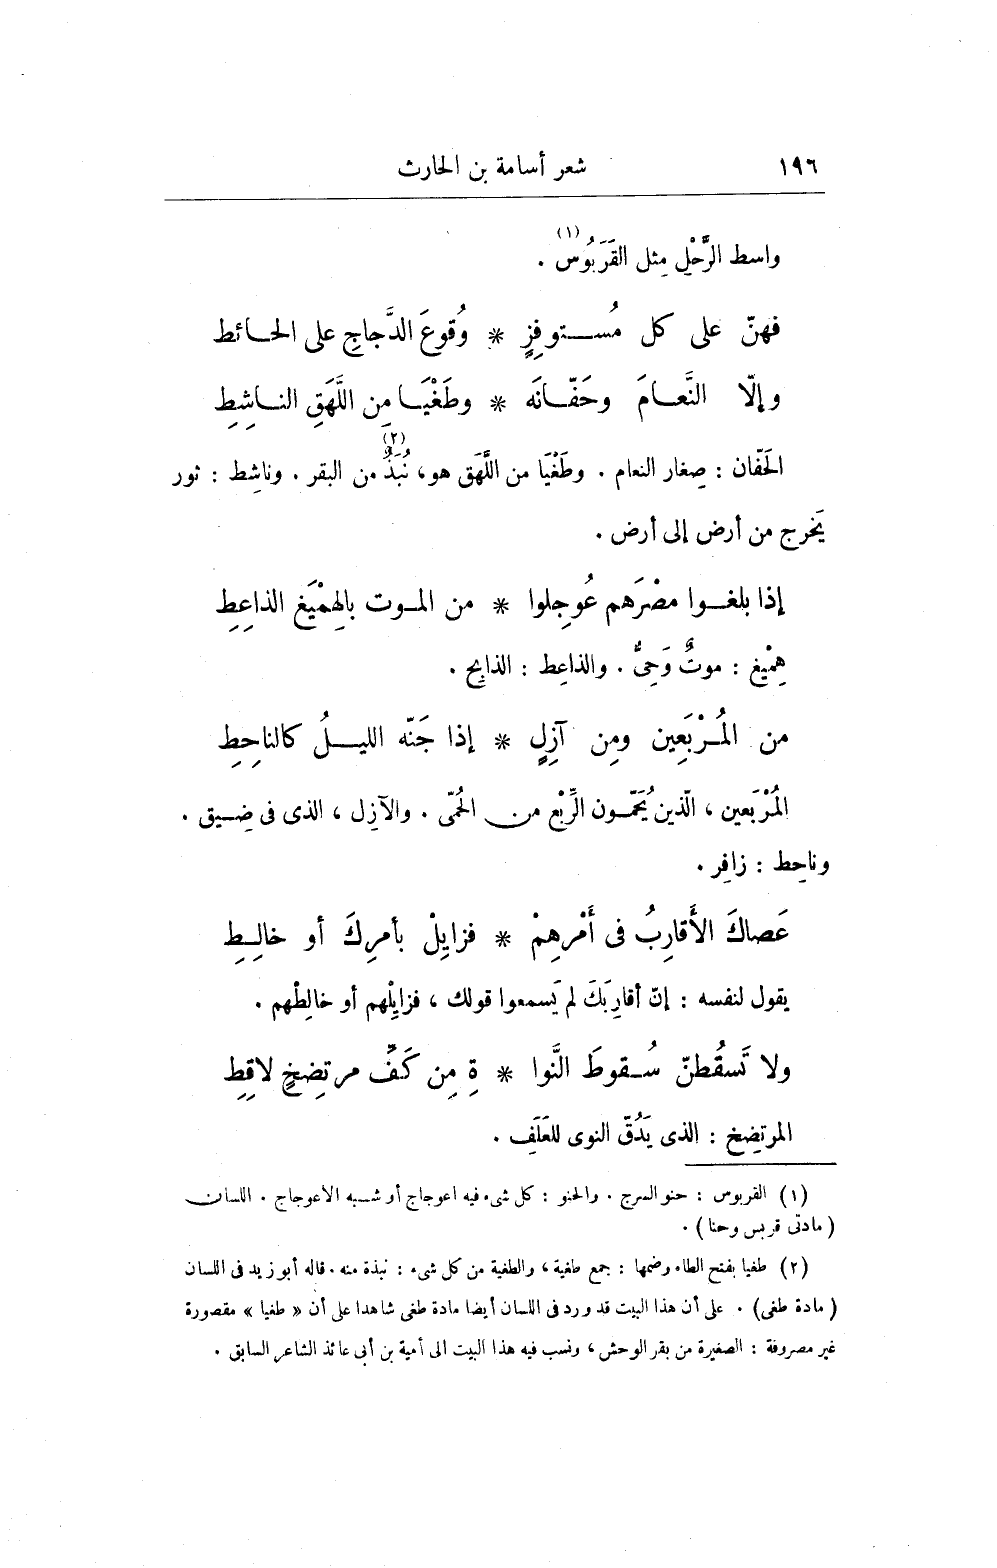 ١٩٦ شعر أسامة بن الحارث
واسط الرَّحْلِ مِثل القَرَبُوس (١) .
فهنّ على كل مُستوفِزٍ * وُقوعَ الدَّجاجِ على الحائط
وإلّا النَّعامَ وحَفّانَه * وطَغْيَا مِن اللَّهَقِ الناشِطِ
الحَفّان : صِغار النعام . وطَغْيَا من اللَّهَق هو، نُبَذٌ (٢) من البقر . وناشِط : ثور
يَخرج من أرض إلى أرض .
إذا بلغوا مِصْرَهم عُوجِلوا * من الموت بالهِمْيَغ الذاعِطِ
هِمْيغ : موتٌ وَحِىٌّ . والذاعِط : الذابِح .
من المُرْبَعِين ومِن آزِلٍ * إذا جَنّه الليلُ كالناحِطِ
المُرْبَعين ، الّذين يُحَمّون الرِّبْع من الحُمّى . والآزِل ، الذى فى ضِيق .
وناحِط : زافِر .
عَصاكَ الأَقارِبُ فى أَمْرِهِمْ * فزايِلْ بأمرِكَ أو خالِطِ
يقول لنفسه : إنّ أقارِبَكَ لم يَسمعوا قولك ، فزايِلْهم أو خالِطْهم .
ولا تَسقُطنّ سُقوطَ النَّوا * ةِ مِن كَفِّ مرتضِخٍ لاقِطِ
المرتضِخ : الذى يَدُقّ النوى للعَلَفِ .
(١) القربوس : حنو السرج . والحنو : كل شىء فيه اعوجاج أو شبه الاعوجاج . اللسان
( مادتى قربس وحنا ) .
(٢) طغيا بفتح الطاء وضمها : جمع طغية ، والطغية من كل شىء : نبذة منه . قاله أبو زيد فى اللسان
( مادة طغى ) . على أن هذا البيت قد ورد فى اللسان أيضا مادة طغى شاهدا على أن « طغيا » مقصورة
غير مصروفة : الصغيرة من بقر الوحش ، ونسب فيه هذا البيت الى أمية بن أبى عائذ الشاعر السابق .